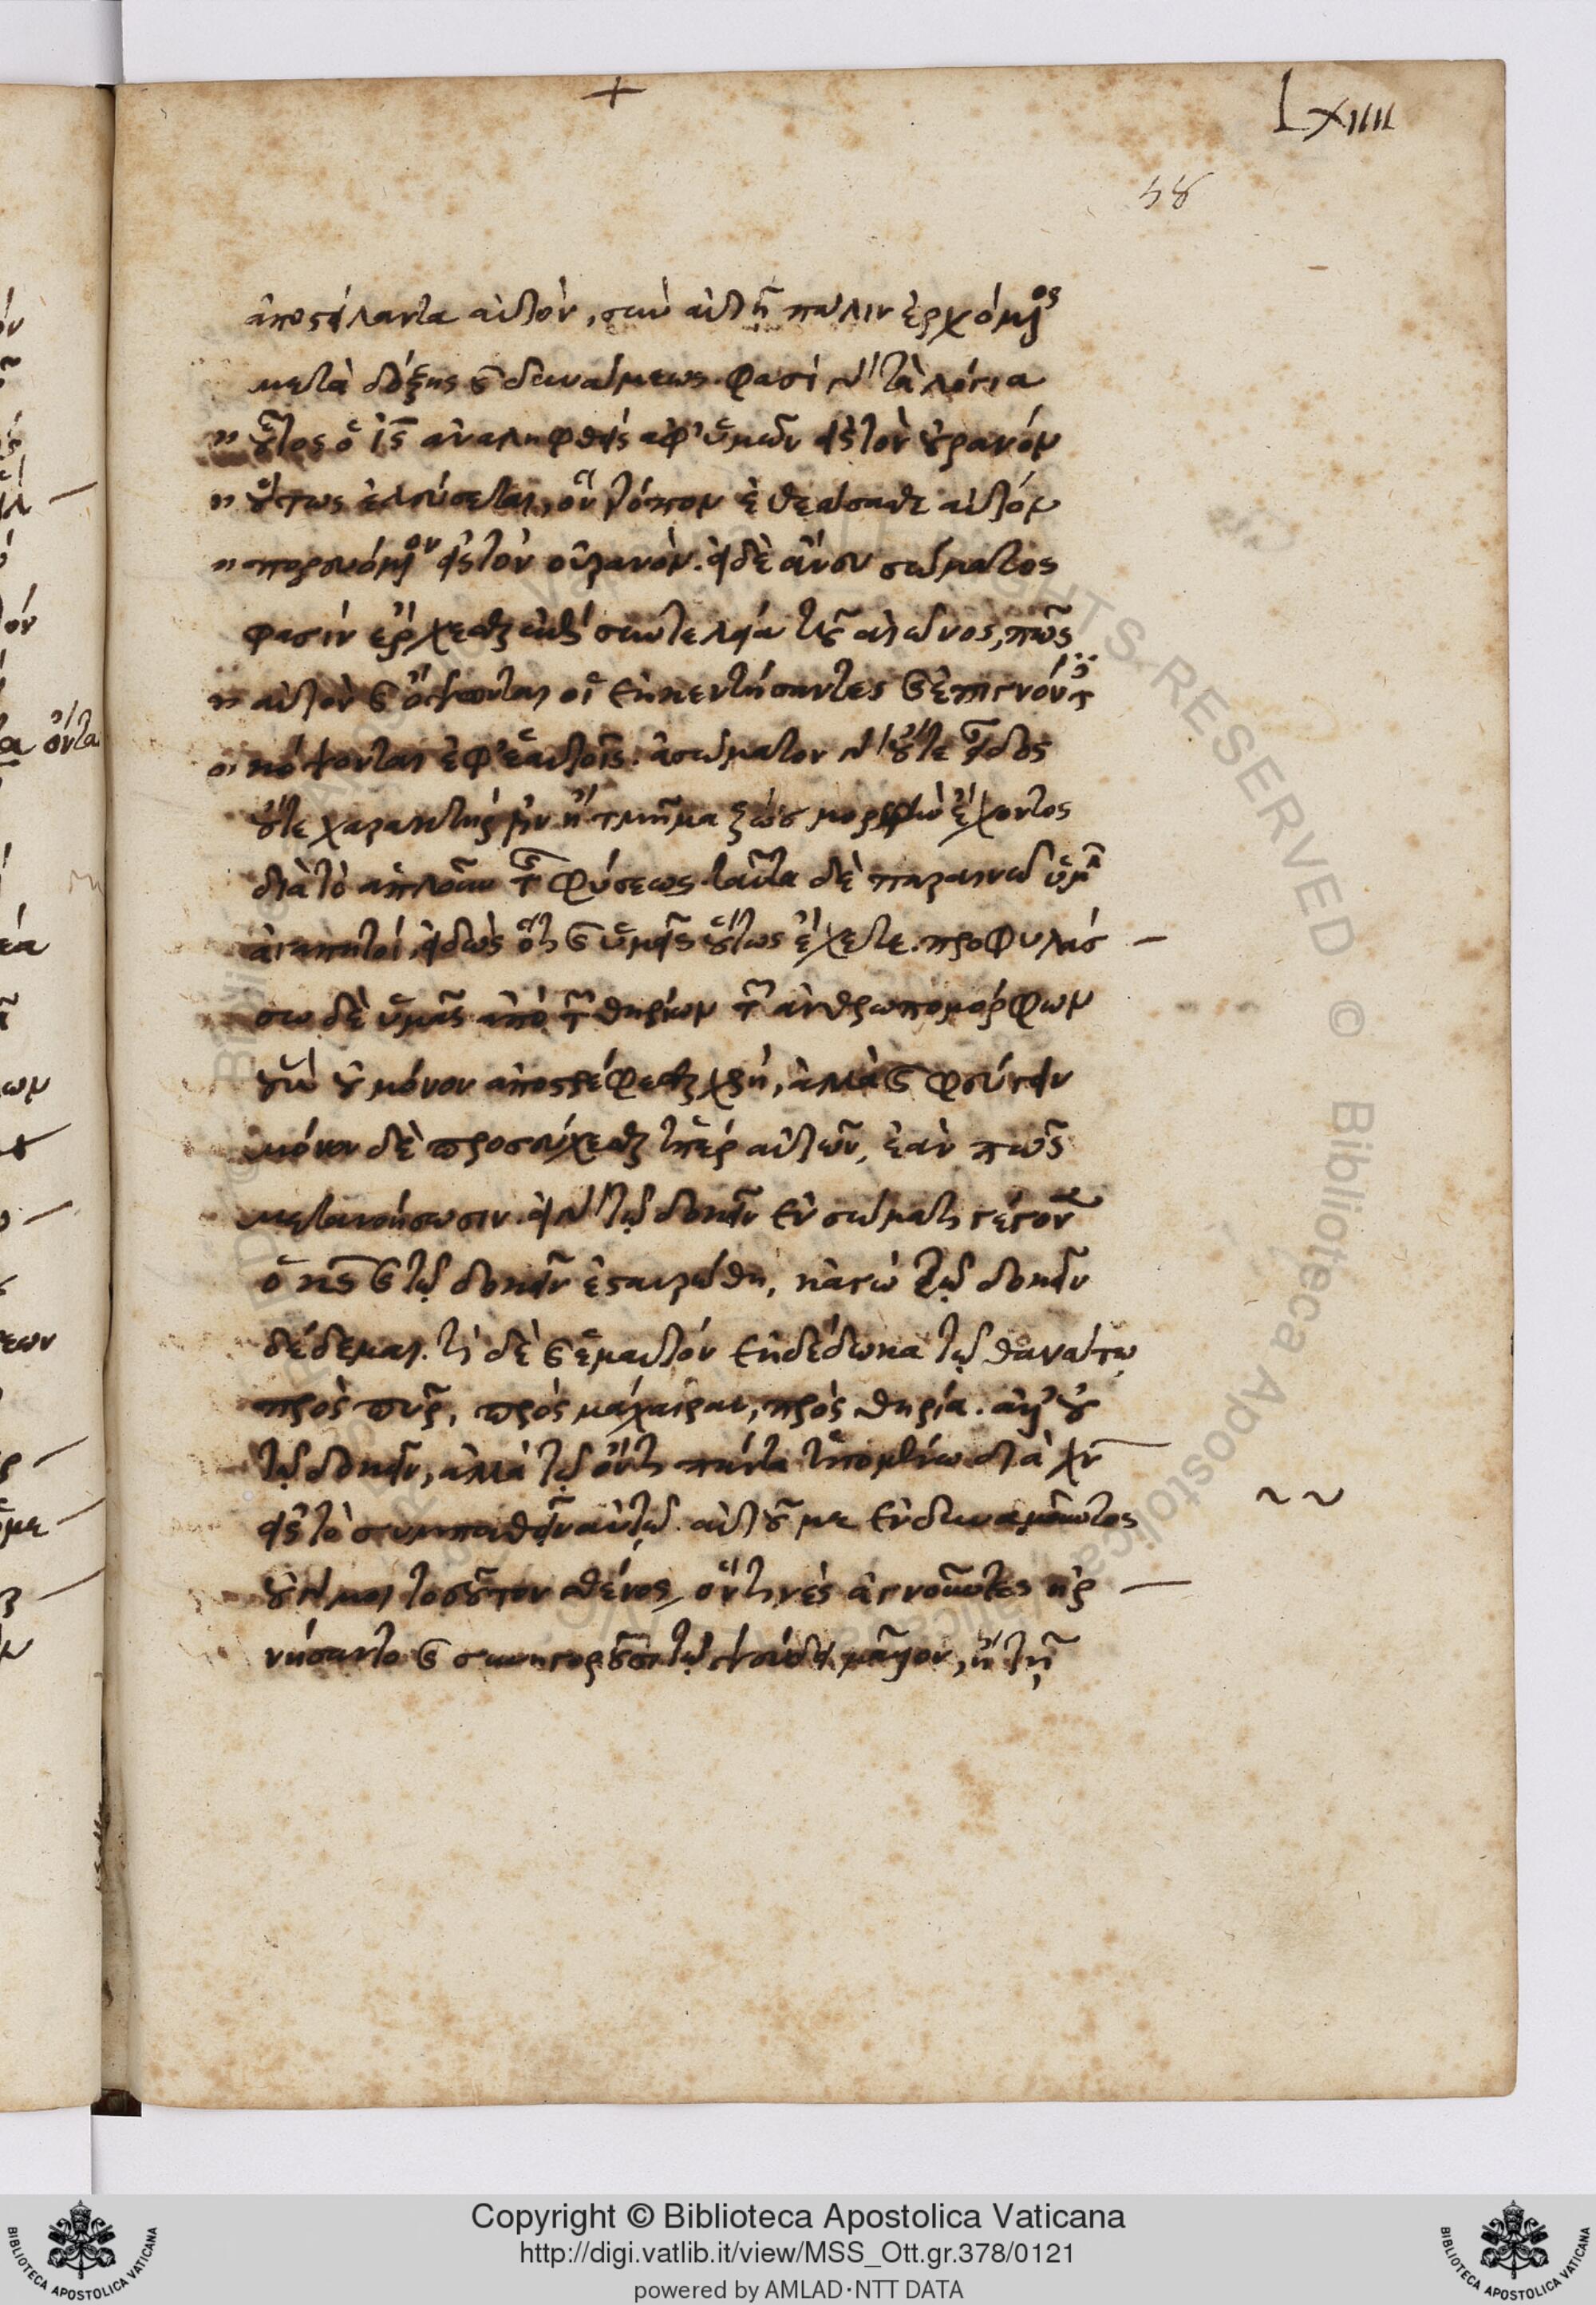 +
Lxiiii
58
ἀποστείλαντα αὐτὸν, σὺν αὐτῇ πάλιν ἐρχόμενος
μετὰ δόξης καὶ δυνάμεως. φασὶ γὰρ τὰ λόγια
" οὗτος ὁ ἰς ἀναληφθεὶς ἀφ' ὑμῶν εἰς τὸν οὐρανὸν
" οὕτως ἐλεύσεται, ὃν τρόπον ἐθεάσασθε αὐτὸν
" πορευόμενον εἰς τὸν οὐρανόν. εἰ δὲ ἄνευ σώματος
φασὶν ἔρχεσθαι ἐπὶ συντελείᾳ τοῦ αἰῶνος, πῶς
" αὐτὸν καὶ ὄψονται οἱ ἐκκεντήσαντες καὶ ἐπιγνόντες
" κόψονται ἐφ' ἑαυτοῖς. ἀσωμάτων γὰρ οὔτε εἶδος
οὔτε χαρακτὴρ ἢ τμῆμα ζώου μορφὴν ἔχοντος
διὰ τὸ ἁπλοῦν τῆς φύσεως. ταῦτα δὲ παραινῶ ὑμῖν
ἀγαπητοί, εἰδὼς ὅτι καὶ ὑμεῖς οὕτως ἔχετε. προφυλάσ
σω δὲ ὑμᾶς ἀπὸ τῶν θηρίων τῶν ἀνθρωπομόρφων
οὓς οὐ μόνον ἀποστρέφεσθαι χρὴ, ἀλλὰ καὶ φεύγειν
μόνον δὲ προσεύχεσθαι ὑπὲρ αὐτῶν, ἐάν πως
μετανοήσωσιν. εἰ γὰρ τῷ δοκεῖν ἐν σώματι γέγονεν
ὁ κς καὶ τῷ δοκεῖν ἐσταυρώθη, κἀγὼ τῷ δοκεῖν
δέδεμαι. τί δὲ καὶ ἐμαυτὸν ἐκδέδωκα τῷ θανάτῳ
πρὸς πῦρ, πρὸς μάχαιραν, πρὸς θηρία. ἀλλ' οὐ
τῷ δοκεῖν, ἀλλὰ τῷ ὄντι πάντα ὑπομένω διὰ χν
εἰς τὸ συμπαθεῖν αὐτῷ. αὐτοῦ με ἐνδυναμοῦντος
οὐ γάρ μοι τοσοῦτον σθένος, ὅν τινες ἀγνοοῦντες ἠρ
νήσαντο καὶ συνηγοροῦσι τῷ ψεύδει μᾶλλον, ἢ τῇ
Copyright © Biblioteca Apostolica Vaticana
http://digi.vatlib.it/view/MSS_Ott.gr.378/0121
powered by AMLAD·NTT DATA